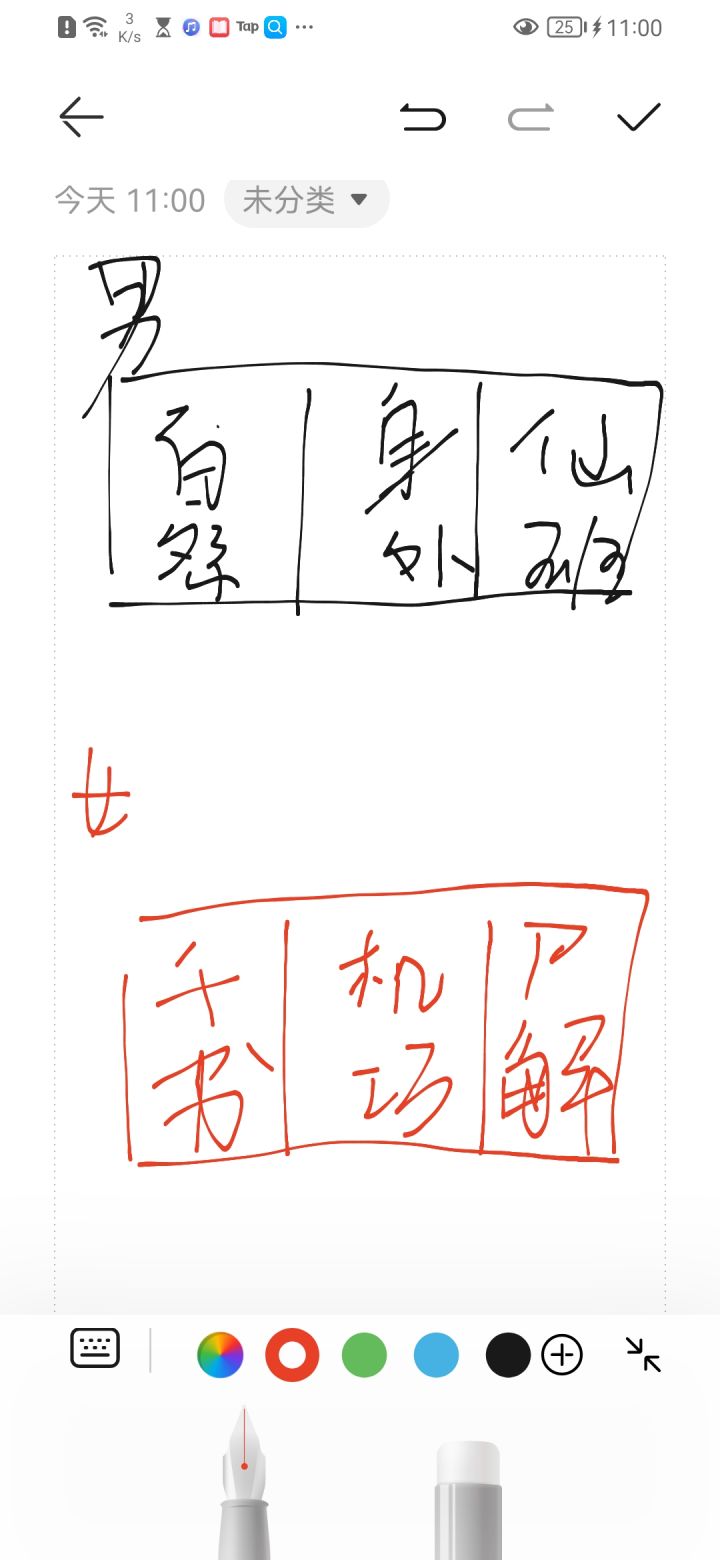 3
K/s
Tap
25
11:00
今天 11:00
未分类
男
百 身 仙
祭 外
女
千 机 尸
书 巧 解